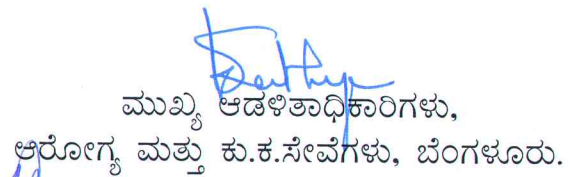 ಮುಖ್ಯ ಆಡಳಿತಾಧಿಕಾರಿಗಳು,
ಆರೋಗ್ಯ ಮತ್ತು ಕು.ಕ.ಸೇವೆಗಳು, ಬೆಂಗಳೂರು.